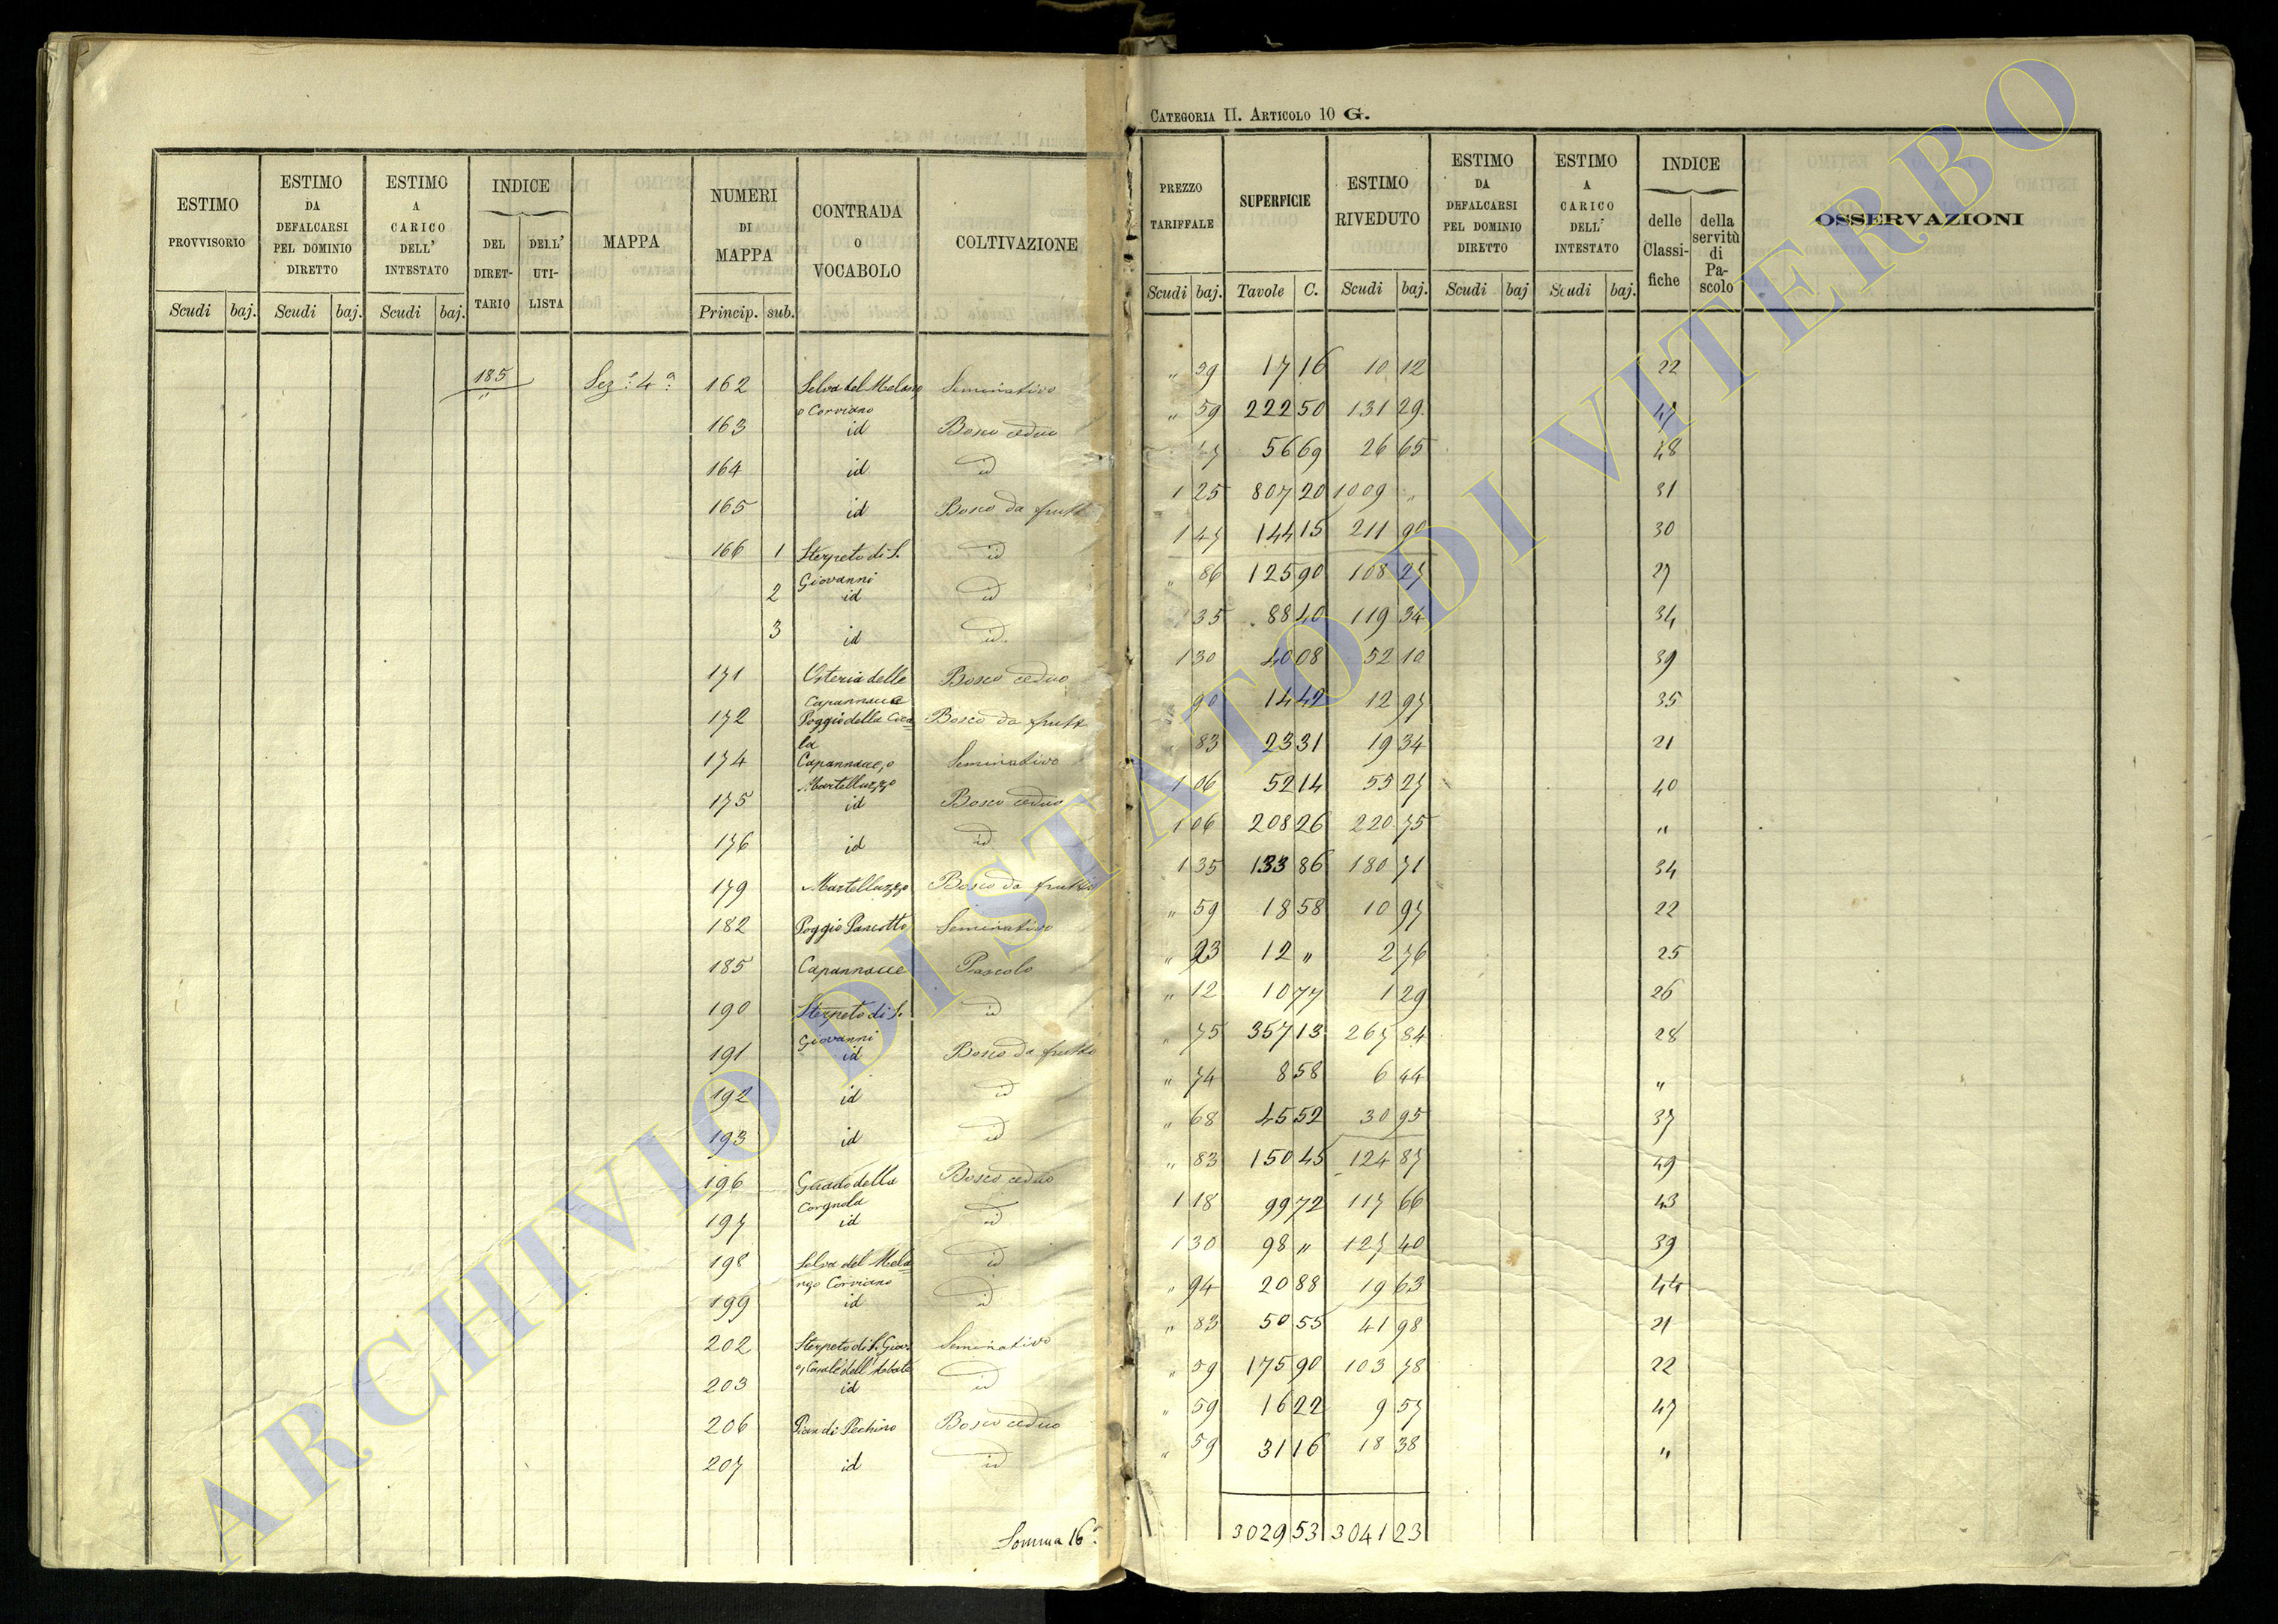 CATEGORIA II. ARTICOLO 10 G.
ESTIMO PROVVISORIO
ESTIMO DA DEFALCARSI PEL DOMINIO DIRETTO
ESTIMO A CARICO DELL' INTESTATO
INDICE
DEL DIRET-TARIO
DELL' UTI-LISTA
MAPPA
NUMERI DI MAPPA
CONTRADA O VOCABOLO
COLTIVAZIONE
Scudi baj. Scudi baj. Scudi baj. Princip. sub.
PREZZO TARIFFALE
SUPERFICIE
ESTIMO RIVEDUTO
ESTIMO DA DEFALCARSI PEL DOMINIO DIRETTO
ESTIMO A CARICO DELL' INTESTATO
INDICE
delle Classi-fiche
della servitù di Pa-scolo
OSSERVAZIONI
Scudi baj. Tavole C. Scudi baj. Scudi baj Scudi baj.
185 Sez.e 4a 162 Selva del Melang
o Corviano Seminativo
163 id Bosco ceduo
164 id id
165 id Bosco da frutt
166 1 Sterpeto di S.
Giovanni id
2 id id
3 id id.
171 Osteria delle
Capannacce Bosco ceduo
172 Poggio della Cuca
la Bosco da frutt
174 Capannacce, o
Martelluzzo Seminativo
175 id Bosco ceduo
176 id id
179 Martelluzzo Bosco da frutti
182 Poggio Pancotto Seminativo
185 Capannacce Pascolo
190 Sterpeto di S.
Giovanni id
191 id Bosco da frutto
192 id id
193 id id
196 Guado della
Corgnola Bosco ceduo
197 id id
198 Selva del Mela
ngo Corviano id
199 id id
202 Sterpeto di S. Giov.
o, Casale dell'Abate Seminativo
203 id id
206 Pian di Pechino Bosco ceduo
207 id id
Somma 16a
" 59 17 16 10 12 22
" 59 222 50 131 29 47
47 56 69 26 65 48
1 25 807 20 1009 " 31
1 47 144 15 211 90 30
" 86 125 90 108 27 27
1 35 88 40 119 34 34
1 30 40 08 52 10 39
90 14 42 12 97 35
" 83 23 31 19 34 21
1 06 52 14 55 27 40
1 06 208 26 220 75 "
1 35 133 86 180 71 34
" 59 18 58 10 97 22
" 23 12 " 2 76 25
" 12 10 77 1 29 26
" 75 357 13 267 84 28
" 74 8 58 6 44 "
" 68 45 52 30 95 37
" 83 150 45 124 87 49
1 18 99 72 117 66 43
1 30 98 " 127 40 39
" 94 20 88 19 63 44
" 83 50 55 41 98 21
" 59 175 90 103 78 22
" 59 16 22 9 57 47
" 59 31 16 18 38 "
3029 53 3041 23
ARCHIVIO DI STATO DI VITERBO